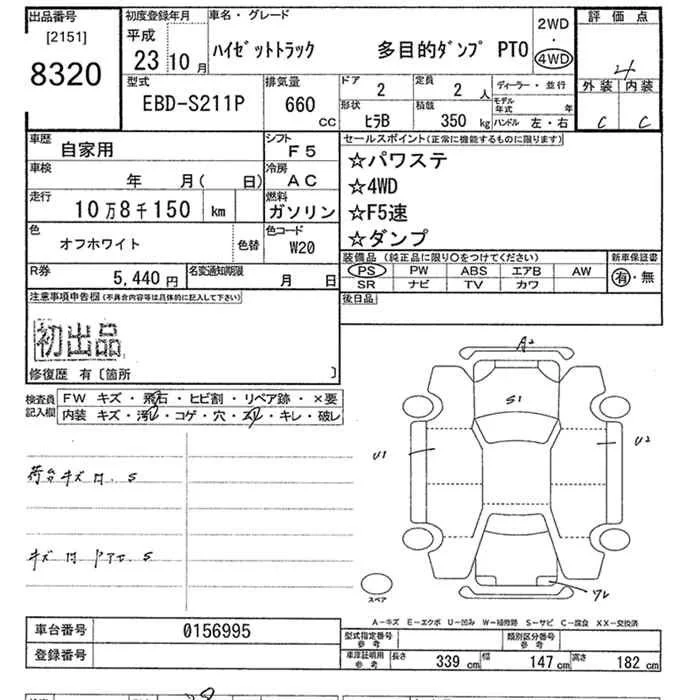 出品番号 初度登録年月 車名・グレード 評価点
[2151] 平成 2WD
8320 23 10月 ハイゼットトラック 多目的ダンプ PTO ・ 4WD 4
型式 排気量 ドア 定員 ディーラー・並行 外装 内装
EBD-S211P 660 CC 2 2 人 モデル年式 年
形状 積載
ヒラB 350 kg ハンドル 左・右 C C
車歴 シフト セールスポイント(正常に機能するものに限ります)
自家用 F5 ☆パワステ
車検 冷房
年 月( 日) AC ☆4WD
走行 燃料
10万8千150 km ガソリン ☆F5速
色 色コード ☆ダンプ
オフホワイト 色替 W20 装備品(純正品に限り○をつけてください) 新車保証書
R券 名変通知期限 PS PW ABS エアB AW 有・無
5,440円 月 日 SR ナビ TV カワ
注意事項申告欄(不具合内容等は具体的に記入して下さい) 後日品
初出品
修復歴 有〔箇所 〕
検査員記入欄 FW キズ・飛石・ヒビ割・リペア跡・×要
内装 キズ・汚れ・コゲ・穴・スレ・キレ・破レ
A2
S1
U1 U2
荷台キズ凹.S
キズ凹 ドア S
スペア
A-キズ E-エクボ U-凹み W-補修跡 S-サビ C-腐食 XX-交換済
車台番号 0156995 型式指定番号参考 類別区分番号参考
登録番号 車庫証明用参考 長さ 339 cm 幅 147 cm 高さ 182 cm